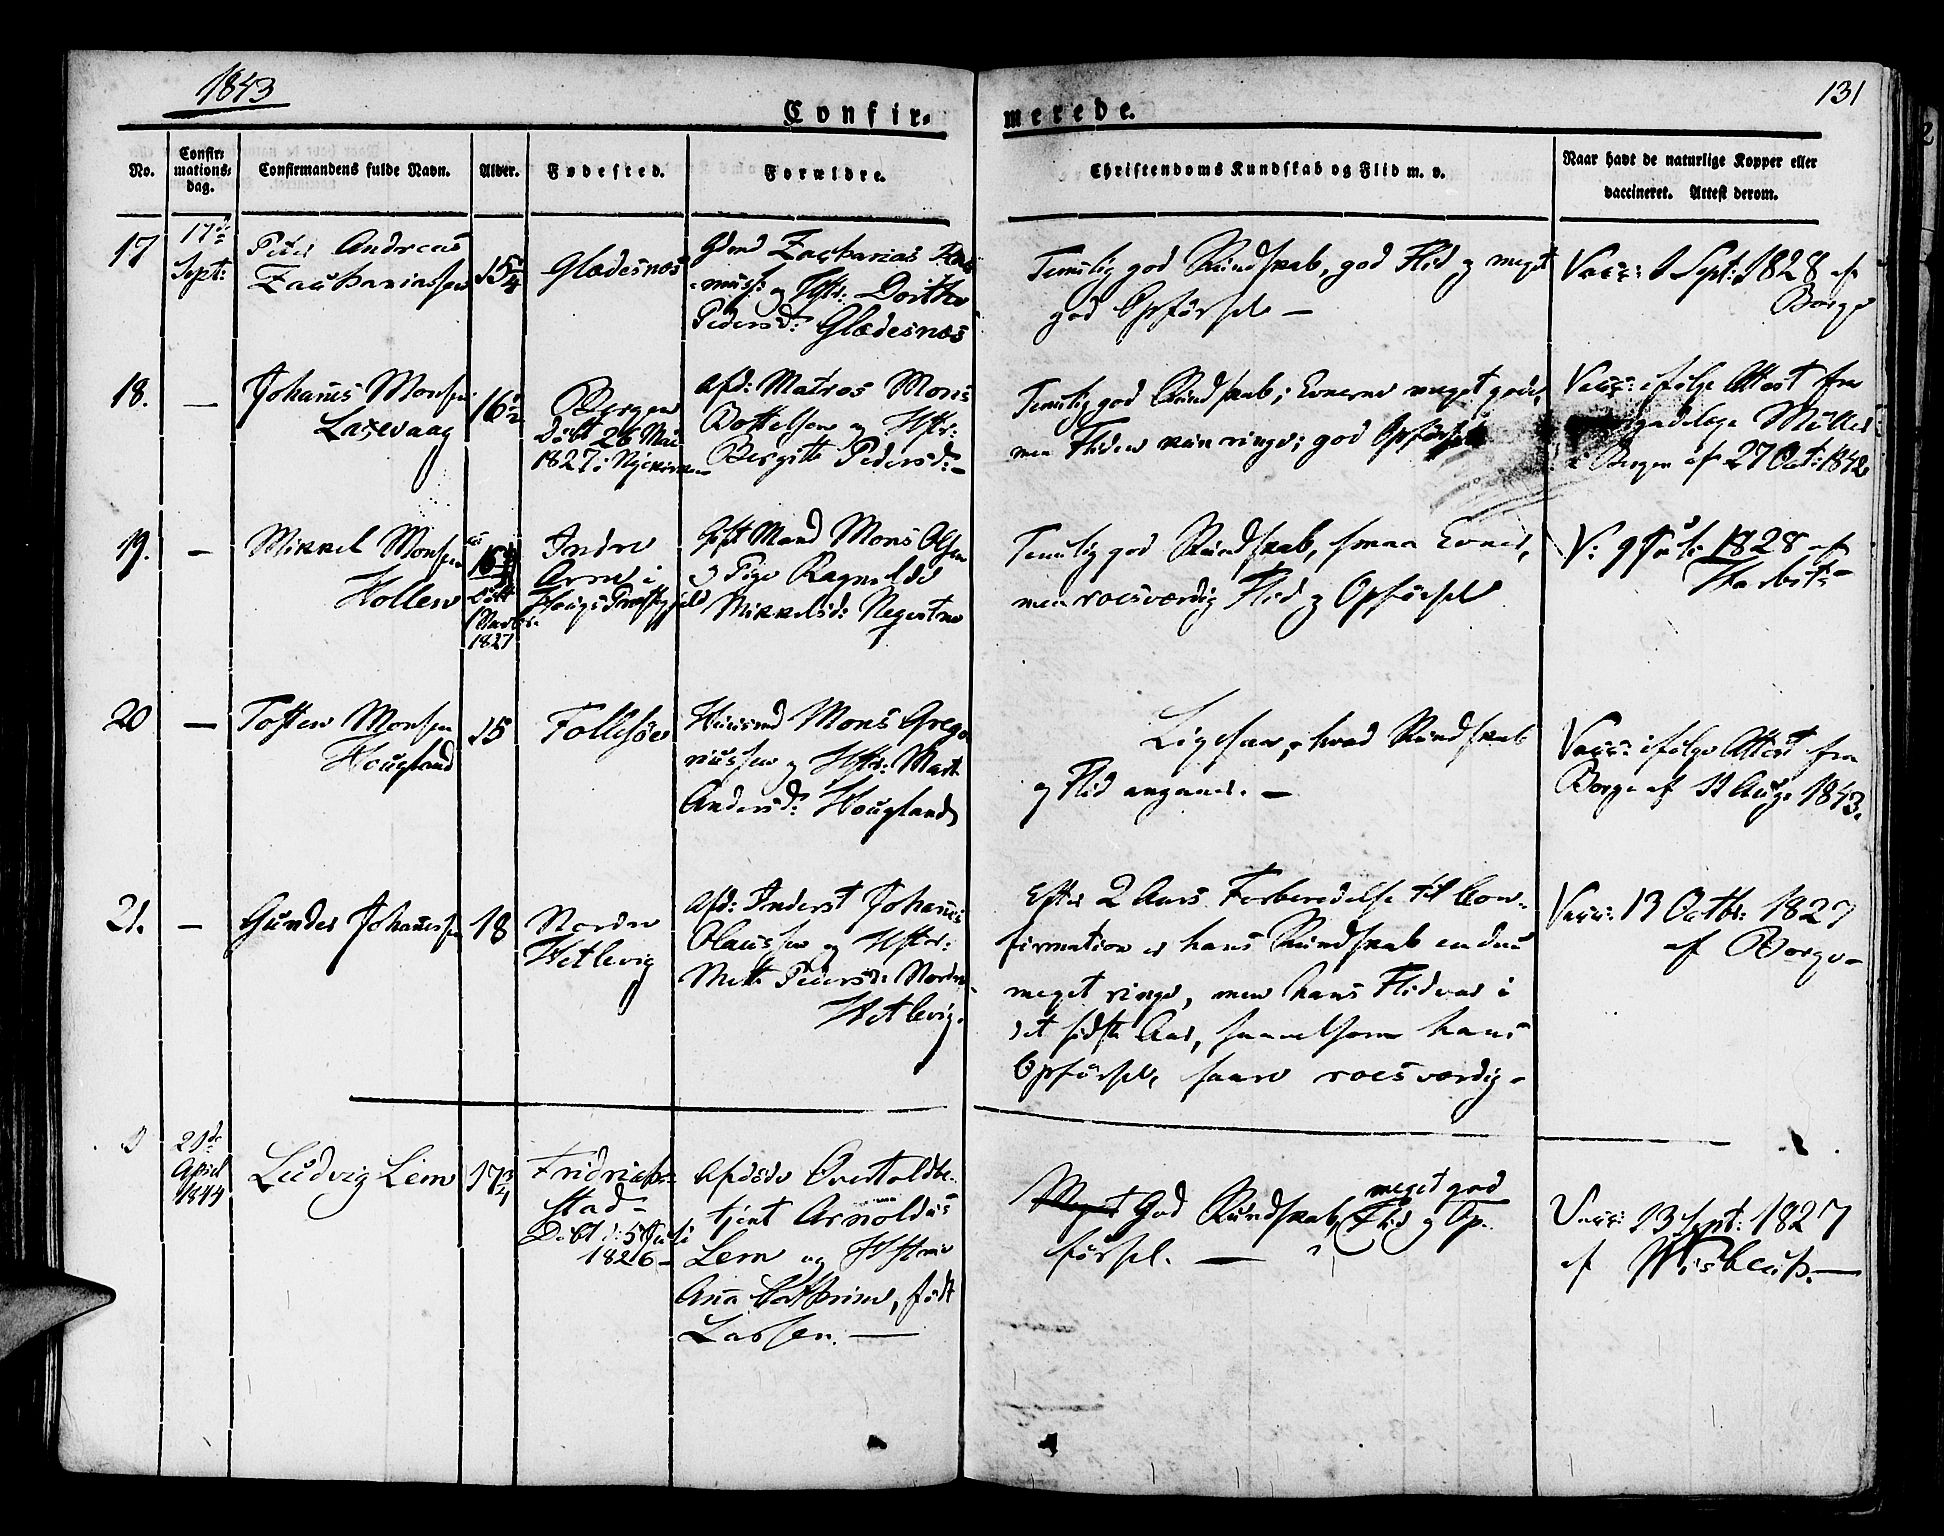 1843
131
Confir-
merede.
No.
Confirmations-
dag.
Confirmandens fulde Navn.
Alder.
Fødested.
Forældre.
Christendoms Kundskab og Flid m. v.
Naar havt de naturlige Kopper eller
vaccineret. Attest derom.
17
17de
Sept:
Peter Andreas
Zachariassen
15 1/4
Gladesnæs
Gdmd Zacharias Ras-
musf: og Hstr: Dorthe
Pedersd: Gladesnæs
Temelig god Kundskab, god Flid og meget
god Opførsel —
Vacc: 1 Sept: 1828 af
Borge
18.
—
Johanes Monsen
Laxevaag
16 1/2
Bergen
Døbt 26 Mai
1827 i Nykirken
Afd: Matros Mons
Bottelsen og Hstr:
Bergitte Pedersd: —
Temelig god Kundskab; Evnerne meget gode,
men Fliden kun ringe; god Opførsel
Vacc: ifølge Attest fra
Müller
i Bergen af 27 Oct: 1842
19.
—
Mikkel Monsen
Hollen
16
Døbt
1827
Indre
Arne i
Hougs Præstegjeld
Gift Mand Mons Olsen
og Pige Ragnilde
Mikkelsd: Hegertne
Temelig god Kundskab, smaa Evner,
men roesværdig Flid og Opførsel
V: 9 Juli 1828 af
20
—
Tosten Monsen
Hougland
15
Follesøe
Huusmd Mons Grego-
riussen og Hstr: Marte
Andersd: Hougland
Ligesaa, hvad Kundskab
og Flid angaaer. —
Vacc: ifølge Attest fra
Borge af 31 Aug: 1843.
21.
—
Gunder Johanessen
18
Nordre
Wetlevig
Afd: Inderst Johanes
Olaussen og Hstr:
Mette Pedersd: Nordre
Wetlevig.
Efter 2 Aars Forberedelse til Con-
firmation er hans Kundskab endnu
meget ringe, men hans Flid var i
det sidste Aar, saavelsom hans
Opførsel, saare roesværdig —
Vacc: 13 Octbr: 1827
af Borge —
21de
April
1844
Ludvig Lem
17 3/4
Fridrich-
stad —
Døbt d: 5 Juli
1826 —
Afdøde Overtoldbe-
tjent Arnoldus
Lem og Hstrue
Ana Cathrine, født
Lassen. —
Meget God Kundskab, meget god
Flid og Op-
førsel. —
Vacc: 13 Sept: 1827
af Wisbech. —